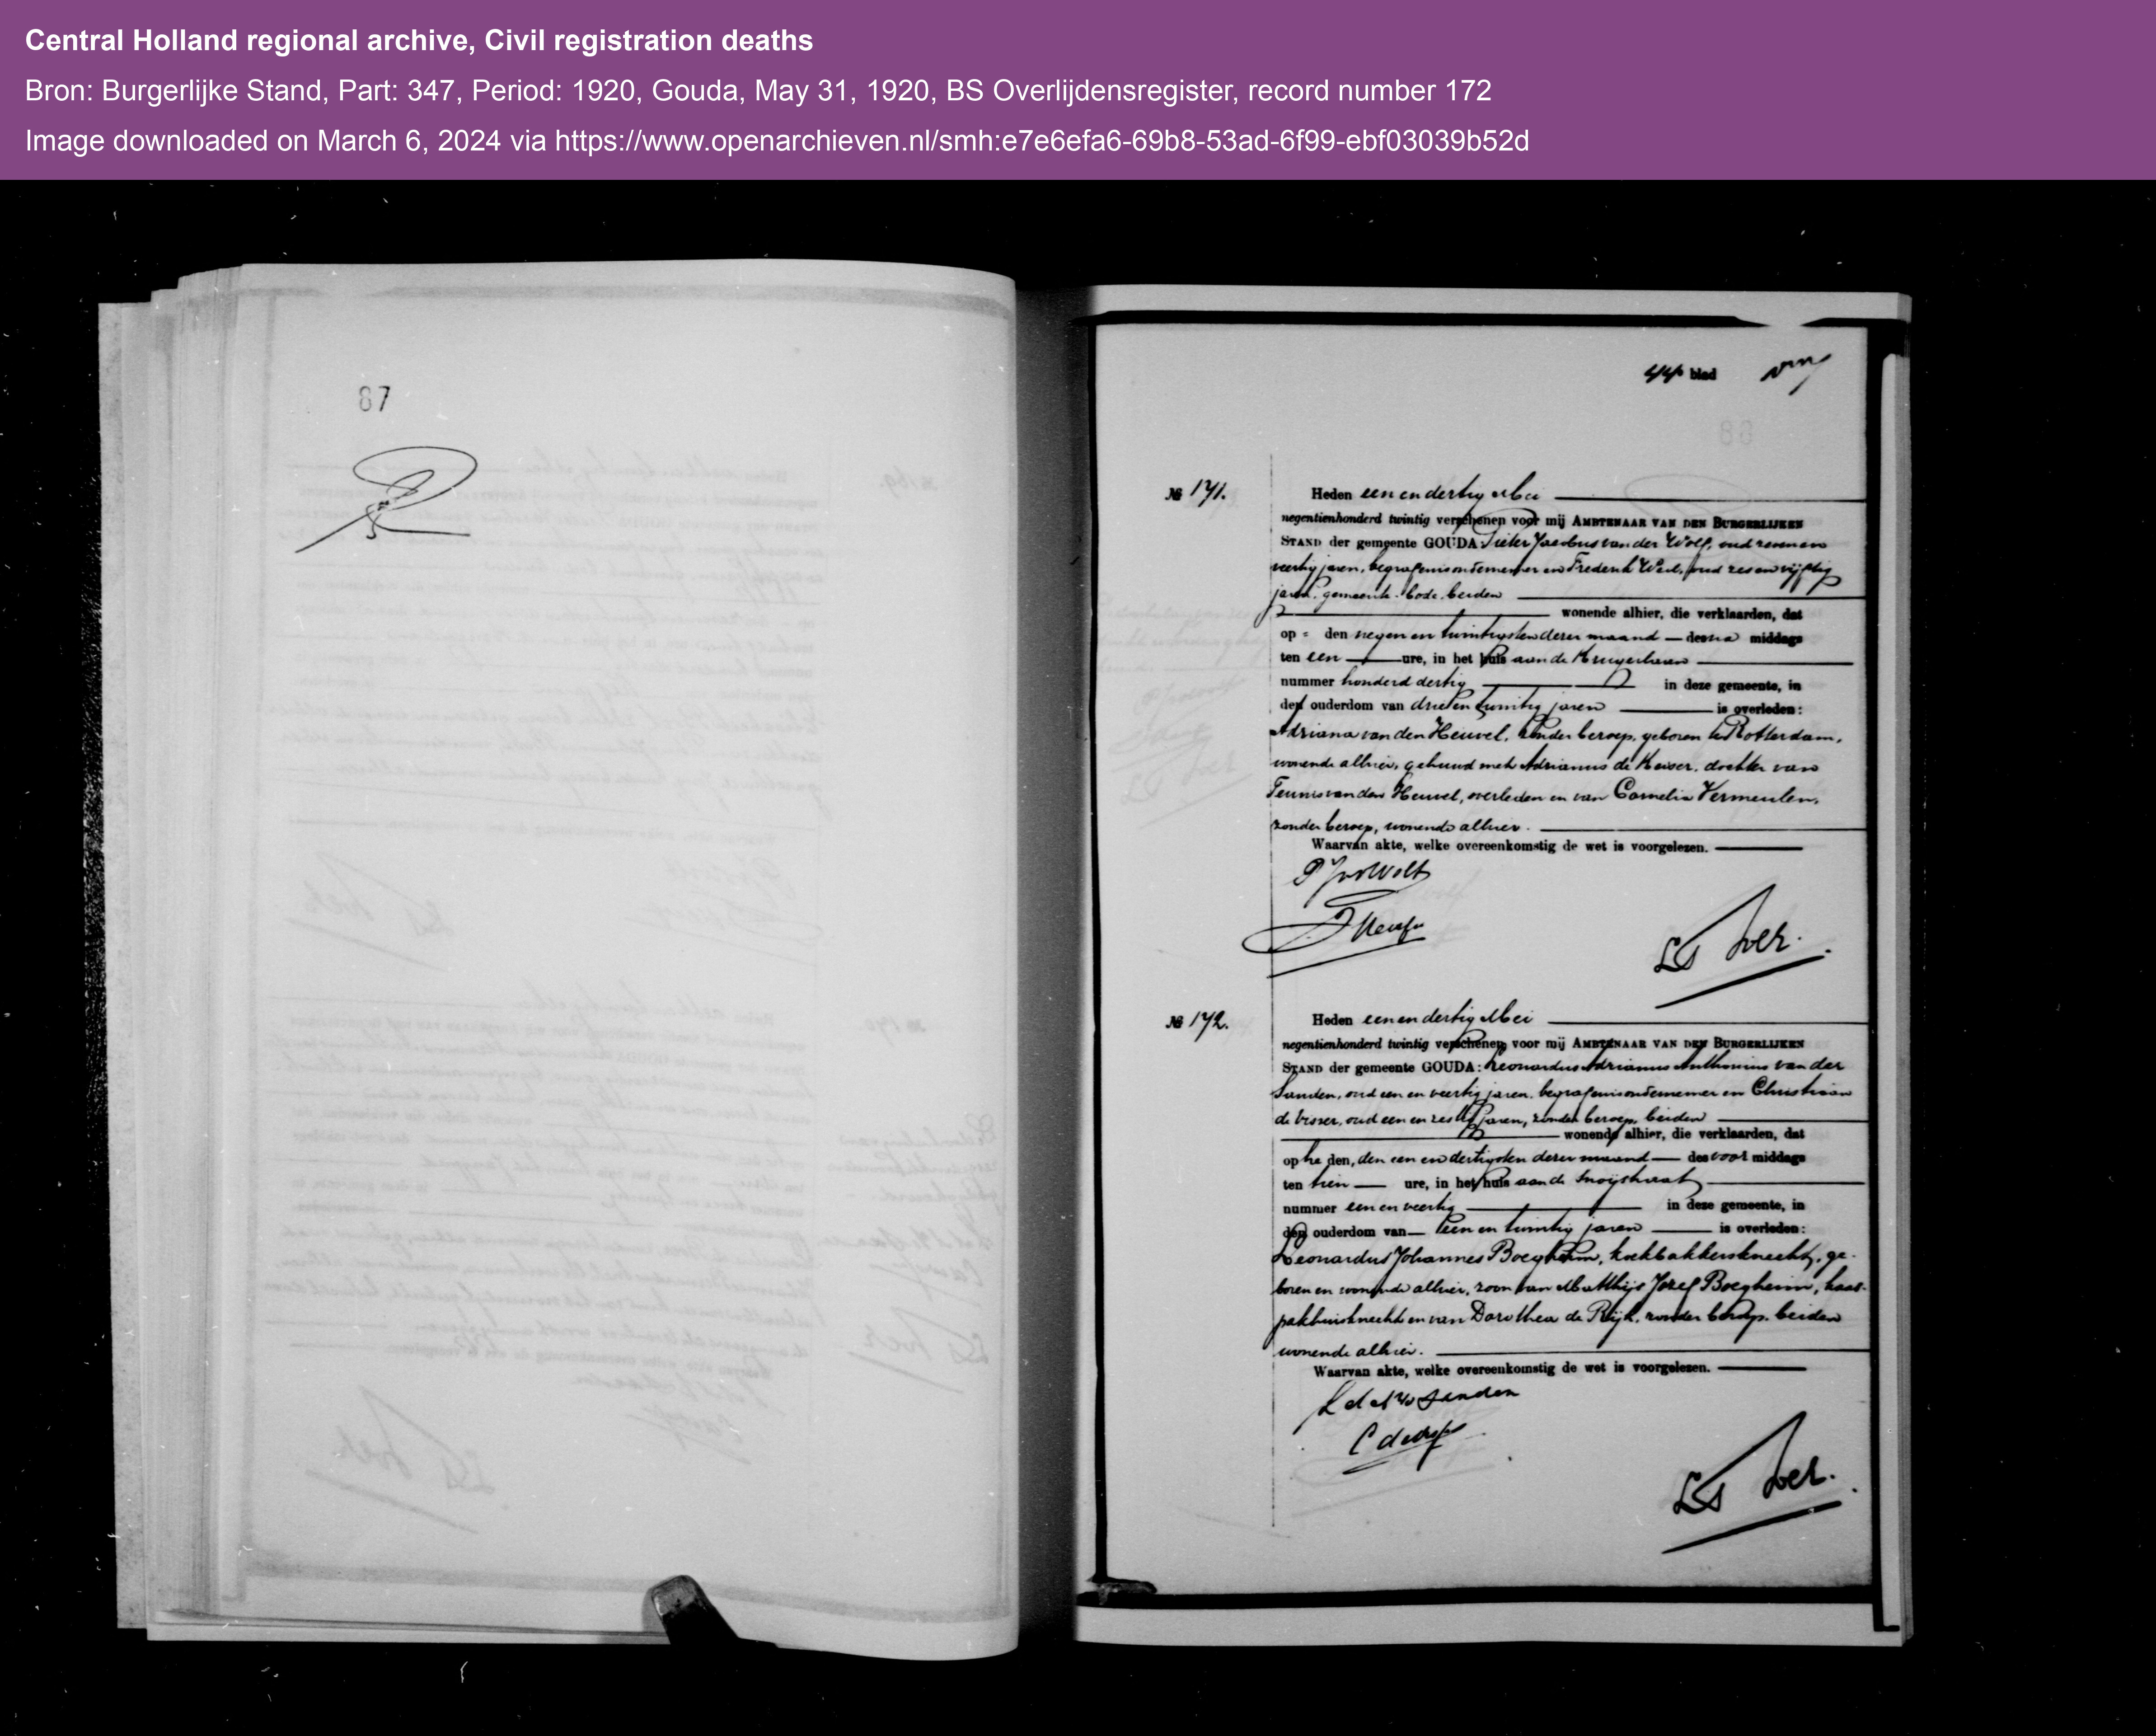 Central Holland regional archive, Civil registration deaths
Bron: Burgerlijke Stand, Part: 347, Period: 1920, Gouda, May 31, 1920, BS Overlijdensregister, record number 172
Image downloaded on March 6, 2024 via https://www.openarchieven.nl/smh:e7e6efa6-69b8-53ad-6f99-ebf03039b52d
87
44e blad
No 171.
Heden een en dertig Mei
negentienhonderd twintig verschenen voor mij AMBTENAAR VAN DEN BURGERLIJKEN
STAND der gemeente GOUDA: Pieter Jacobus van der Wolf, oud zeven en
veertig jaren, begrafenisondernemer en Frederik oud zes en vijftig
jaren, gemeente-bode, beiden
wonende alhier, die verklaarden, dat
op den negen en twintigsten dezer maand des na middags
ten een ure, in het huis aan de Krugerlaan
nummer honderd dertig in deze gemeente, in
den ouderdom van drie en twintig jaren is overleden:
Adriana van den Heuvel, zonder beroep, geboren te Rotterdam,
wonende alhier, gehuwd met Adrianus de Keiser, dochter van
Teunis van den Heuvel, overleden en van Cornelia Vermeulen,
zonder beroep, wonende alhier.
Waarvan akte, welke overeenkomstig de wet is voorgelezen.
PJvdWolf
No 172.
Heden een en dertig Mei
negentienhonderd twintig verschenen voor mij AMBTENAAR VAN DEN BURGERLIJKEN
STAND der gemeente GOUDA: Leonardus Adrianus Anthonius van der
Sanden, oud een en veertig jaren, begrafenisondernemer en Christiaan
de Visser, oud een en zestig jaren, zonder beroep, beiden
wonende alhier, die verklaarden, dat
op heden, den een en dertigsten dezer maand des voor middags
ten tien ure, in het huis aan de Snoijstraat
nummer een en veertig in deze gemeente, in
den ouderdom van een en twintig jaren is overleden:
Leonardus Johannes Boegheim, koekbakkersknecht, ge-
boren en wonende alhier, zoon van Matthijs Jozef Boegheim, kaas-
pakhuisknecht en van Dorothea de Rijk, zonder beroep, beiden
wonende alhier.
Waarvan akte, welke overeenkomstig de wet is voorgelezen.
vd Sanden
C de Visser